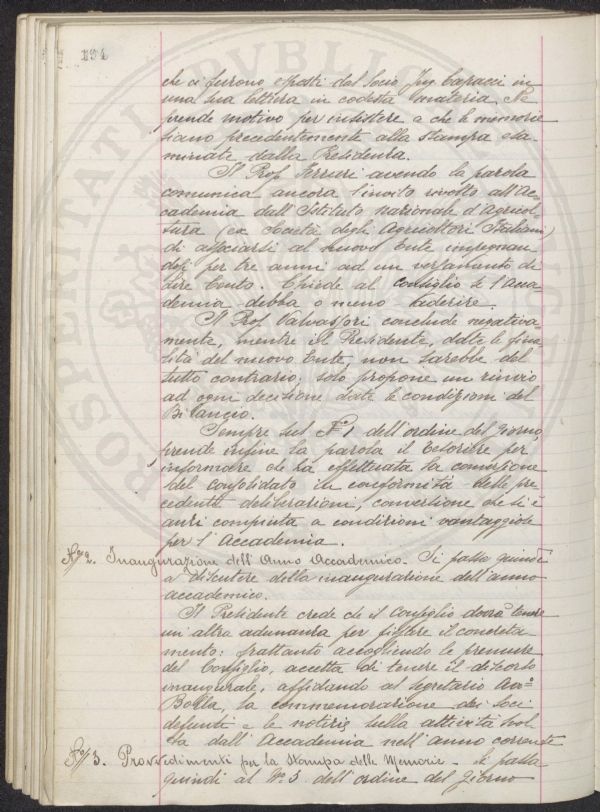 194
che ci furono esposti dal Socio Ing. Caracci in
una sua lettera in codesta materia. Si
prende motivo per insistere a che le memorie
siano precedentemente alla stampa esa-
minate dalla Presidenza.
Il Prof. Ferrari avendo la parola
comunica ancora l'invito rivolto all'Ac-
cademia dall'Istituto Nazionale d'Agricol-
tura (ex Società degli Agricoltori Italiani)
di associarsi al nuovo Ente impegnan
dosi per tre anni ad un versamento di
Lire Cento. Chiede al Consiglio se l'Acca-
demia debba o meno aderire.
Il Prof. Valvassori conclude negativa-
mente, mentre il Presidente, date le fina-
lità del nuovo Ente, non sarebbe del
tutto contrario; solo propone un rinvio
ad ogni decisione date le condizioni del
Bilancio.
Sempre sul N.º 1 dell'ordine del giorno,
prende infine la parola il Tesoriere per
informare che ha effettuata la conversione
del consolidato in conformità delle pre-
cedenti deliberazioni, conversione che si è
anzi compiuta a condizioni vantaggiose
per l'Accademia.
Nº 2. Inaugurazione dell'Anno Accademico. Si passa quindi
a discutere della inaugurazione dell'anno
accademico.
Il Presidente crede che il Consiglio dovrà tenere
un'altra adunanza per fissare il concreta-
mento: frattanto accogliendo le premure
del Consiglio, accetta di tenere il discorso
inaugurale, affidando al Segretario Avv.º
Bolla, la commemorazione dei Soci
defunti e le notizie sulla attività svol
ta dall'Accademia nell'anno corrente
Nº 3. Provvedimenti per la Stampa delle Memorie - Si passa
quindi al Nº 3 dell'ordine del giorno
PROSPERITATI PUBLICAE